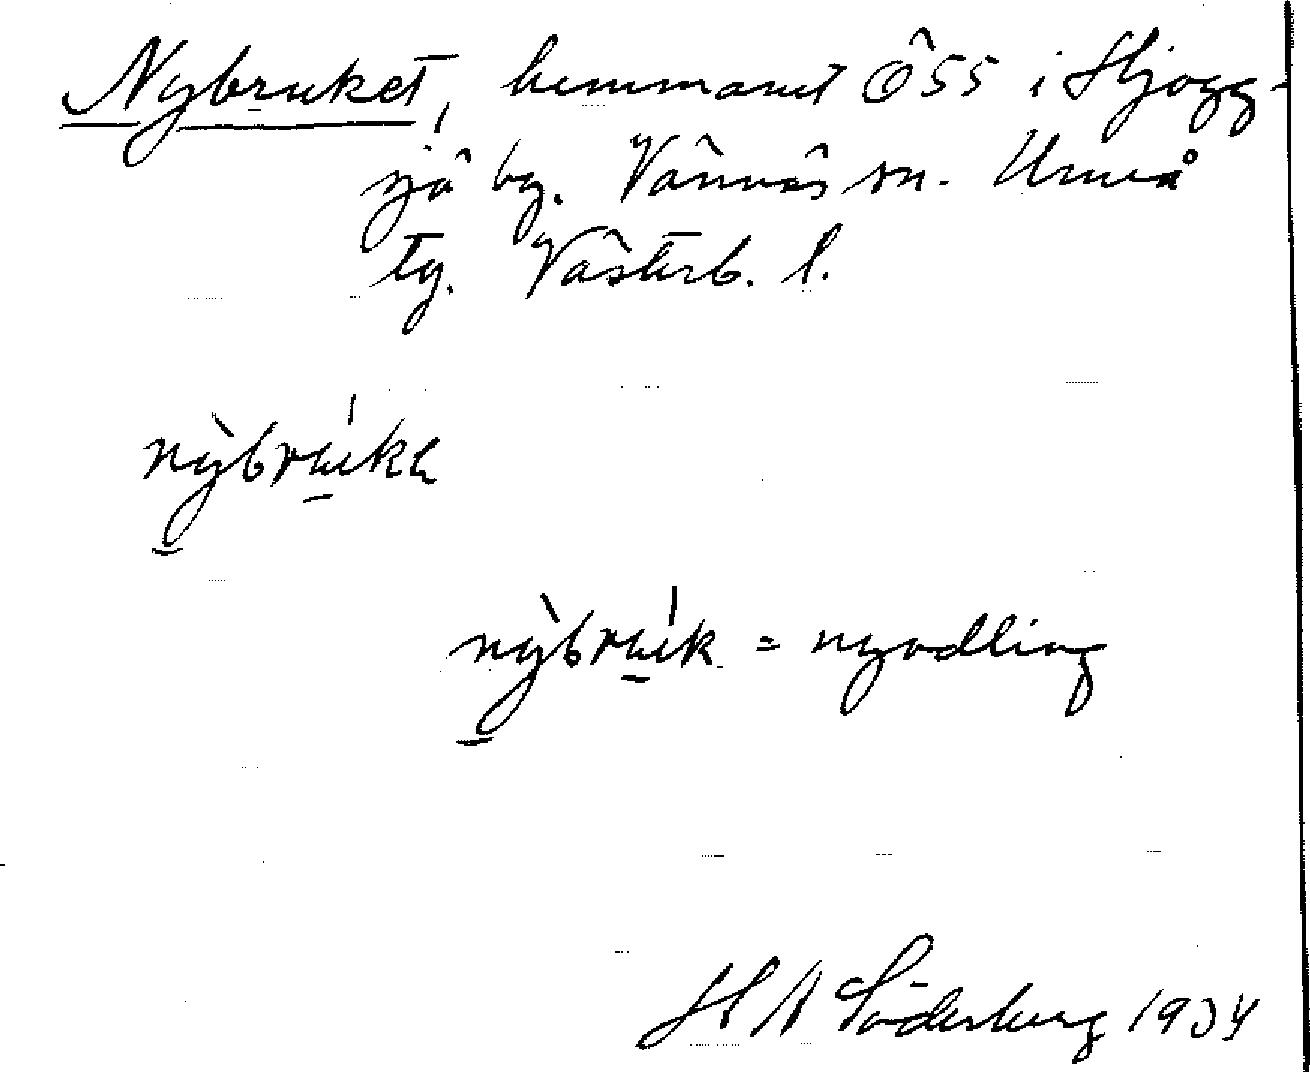 Nybruket, hemmanet Ö55 i Hjogg-
sjö by. Vännäs sn. Umeå
tg. Västerb. l.
nỳbrúkh
nỳbrúk = nyodling
H A Söderberg 1934